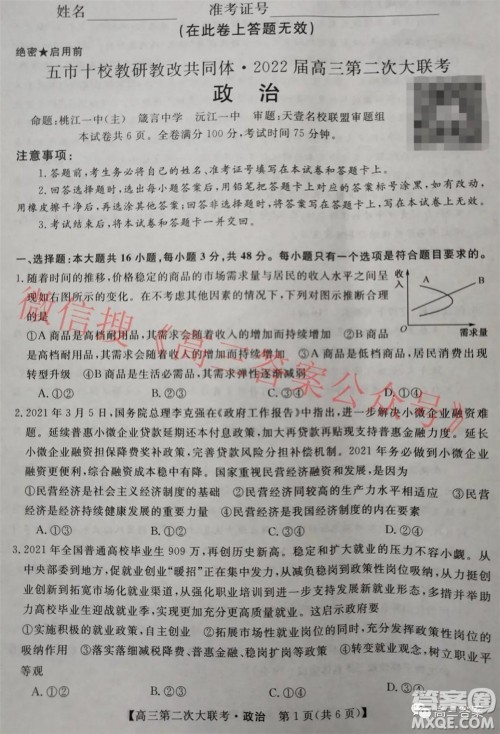 姓名 准考证号
(在此卷上答题无效)
绝密★启用前
五市十校教研教改共同体·2022届高三第二次大联考
政 治
命题:桃江一中(主) 箴言中学 沅江一中 审题:天壹名校联盟审题组
本试卷共6页。全卷满分100分,考试时间75分钟。
注意事项:
1.答题前,考生务必将自己的姓名、准考证号填写在本试卷和答题卡上。
2.回答选择题时,选出每小题答案后,用铅笔把答题卡上对应题目的答案标号涂黑,如有改动,
用橡皮擦干净后,再选涂其他答案标号。回答非选择题时,将答案写在答题卡上。写在本试卷上无效。
3.考试结束后,将本试卷和答题卡一并交回。
一、选择题:本大题共16小题,每小题3分,共48分。每小题只有一个选项是符合题目要求的。
1.随着时间的推移,价格稳定的商品的市场需求量与居民的收入水平之间呈
现如右图所示的变化。在不考虑其他因素的情况下,下列对图示推断合理
的是
收入
需求量
①A商品是高档耐用品,其需求会随着收入的增加而持续增加 ②B商品
是高档耐用品,其需求会随着收入的增加而持续增加 ③A商品是低档商品,居民消费出现
转型升级 ④B商品是生活必需品,其需求弹性逐渐减弱
A.①② B.①③ C.②④ D.③④
2.2021年3月5日,国务院总理李克强在《政府工作报告》中指出,进一步解决小微企业融资难
题。延续普惠小微企业贷款延期还本付息政策,加大再贷款再贴现支持普惠金融力度。延长
小微企业融资担保降费奖补政策,完善贷款风险分担补偿机制。2021年务必做到小微企业
融资更便利,综合融资成本稳中有降。国家重视民营经济的发展和融资难题,是因为
①民营经济是社会主义经济制度的基础 ②民营经济同较高的生产力水平相适应
③民营经济是国民经济的重要力量 ④民营经济能够增加就业、改善民生
A.①③ B.①④ C.③④ D.②④
3.2021年全国普通高校毕业生909万,再创历史新高。稳定和扩大就业的压力不容小觑。从
中央部委到地方,促就业创业“暖招”正在集中发力,从减负稳岗到政策性岗位开发,从创业创
新到拓宽市场化就业渠道,从实现更加充分就业到实现更高质量就业,多地推出多举措并举助
力高校毕业生迎战就业季,实现更加充分更高质量就业。这启示我们
①实施积极的就业政策,自主创业 ②拓展市场性就业岗位的同时,充分发挥政策性岗位的
吸纳作用 ③落实落细减税降费、普惠金融等国家政策 ④劳动者要树立职业平
等观
A.①② B.①③ C.②③ D.②④
【高三第二次大联考·政治 第1页(共6页)】
微信搜《高三答案公众号》
答案圈
高三答案